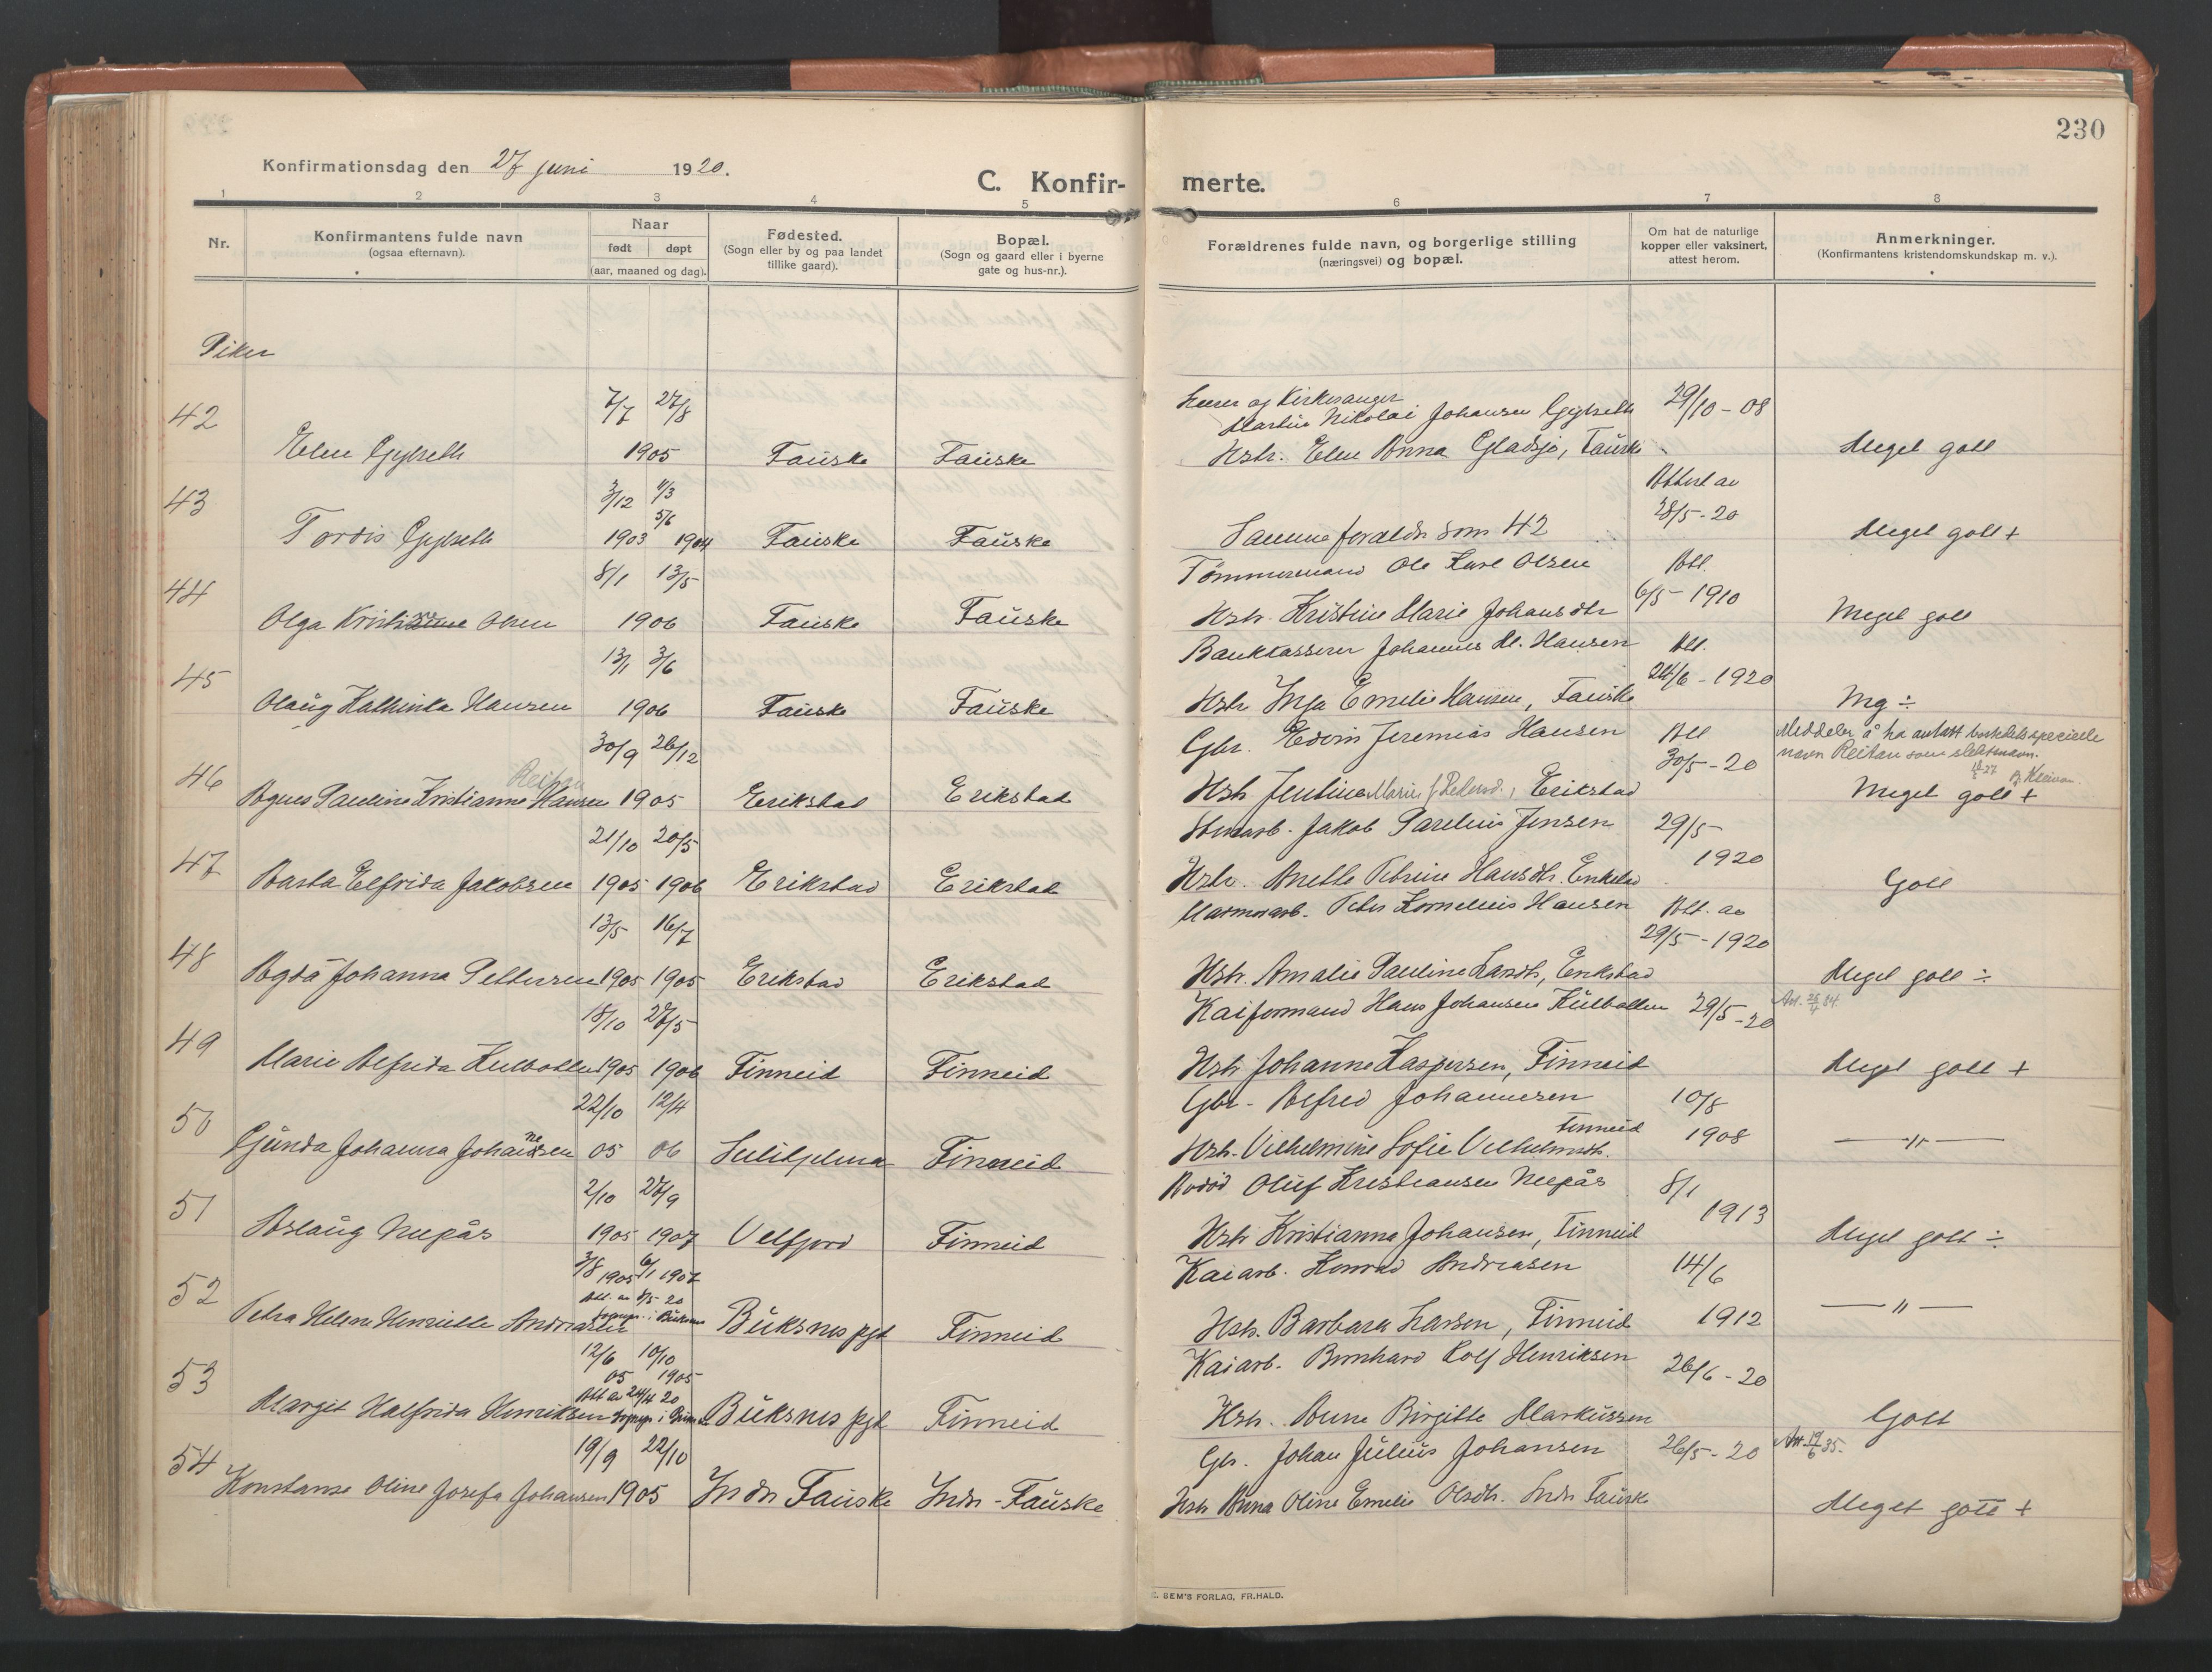 230
Konfirmationsdag den 27 juni 1920.
C. Konfir- merte.
1 2 3 4 5 6 7 8
Nr.
Konfirmantens fulde navn
(ogsaa efternavn).
Naar
født døpt
(aar, maaned og dag).
Fødested.
(Sogn eller by og paa landet
tillike gaard).
Bopæl.
(Sogn og gaard eller i byerne
gate og hus-nr.).
Forældrenes fulde navn, og borgerlige stilling
(næringsvei) og bopæl.
Om hat de naturlige
kopper eller vaksinert,
attest herom.
Anmerkninger.
(Konfirmantens kristendomskundskap m. v.).
Piker
42 7/7 27/8 Lærer og Kirkesanger
Martin Nikolai Johansen Gylseth 29/10-08
Elen Gylseth 1905 Fauske Fauske Hstr. Elen Anna Gladsjø, Fauske Meget godt
43 3/12 11/3 Attest av
5/6 28/5-20
Tordis Gylseth 1903 1904 Fauske Fauske Samme foreldre som 42 Meget godt +
44 8/1 13/5 Tømmermand Ole Karl Olsen Att.
6/5-1910
Olga Olsen 1906 Fauske Fauske Hstr. Kristine Marie Johansdtr Meget godt
45 13/1 3/6 Bankkasserer Johannes M. Hansen Att.
24/6-1920
Olaug Kathinka Hansen 1906 Fauske Fauske Hstr Inga Emelie Hansen, Fauske Mg ÷
46 30/9 26/12 Gbr. Edvin Jeremias Hansen Att
30/5-20
Meddeler å ha antatt
navn Reitan som slektsnavn.
Reitan
Agnes Pauline Kristianne Hansen 1905 Erikstad Erikstad Hstr Jentine Marie f. Pedersd., Erikstad Meget godt +
47 21/10 20/5 Stenarb. Jakob Parelius Jensen 29/5-
1920
Aasta Elfrida Jakobsen 1905 1906 Erikstad Erikstad Hstr. Anette Petrine Hansdtr. Erikstad Godt
48 13/5 16/7 Marmorarb. Peter Kornelius Hansen Att. av
29/5-1920
Agda Johanna Pettersen 1905 1905 Erikstad Erikstad Hstr. Amalie Pauline Larsdtr, Erikstad Meget godt ÷
49 18/10 27/5 Kaiformand Hans Johansen Kulbotten 29/5-20
Marie Alfrida Kulbotten 1905 1906 Finneid Finneid Hstr Johanne Kaspersen, Finneid Meget godt +
50 22/10 12/4 Gbr. Alfred Johannesen 10/8
1908
Gunda Johanna Johannesen 05 06 Sulitjelma Finneid Hstr. Vilhelmine Sofie Vilhelmsdtr. Finneid — " —
51 2/10 27/9 Oluf Kristiansen Nepås 8/1
1913
Aslaug Nepås 1905 1907 Velfjord Finneid Hstr Kristianna Johansen, Finneid Meget godt ÷
52 3/8 1905 6/1 1907
Att. av 8/5 20
Kaiarb. Konrad Andreasen 14/6
1912
Petra Helene Henriette Andreasen Buksnes pgd Finneid Hstr. Barbara Larsen, Finneid — " —
53 12/6 10/10
05 1905
Att av 24/4 20
Kaiarb. Bernhard Rolf Henriksen 26/6-20
Margit Halfrida Henriksen Buksnes pgd Finneid Hstr. Anne Birgitte Markussen Godt
54 19/9 22/10 Gb. Johan Julius Johansen 26/5-20 Att. 19/6 35.
Konstanse Oline Josefa Johansen 1905 Indr Fauske Indr-Fauske Hstr Anna Oline Emelie Olsdtr. Indr Fauske Meget godt +
SEM'S FORLAG, FR.HALD.